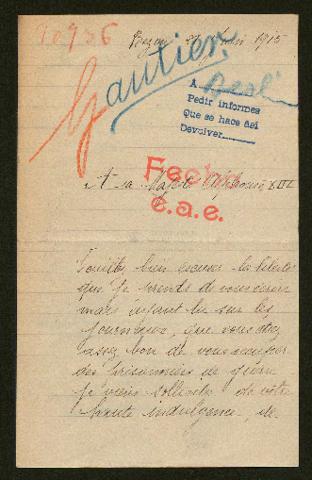 Juin 1915
Gautier
A Berlin
Pedir informes
Que se hace así
Devolver
A sa Majesté Alphonse XIII
Fecho
e.a.e.
Veuillez bien excuser la liberté
que je prends de vous écrire
mais ayant lu sur les
journeaux, que vous étiez
assez bon de vous occuper
des prisonniers de guerre
je viens solliciter de votre
haute indulgence, de